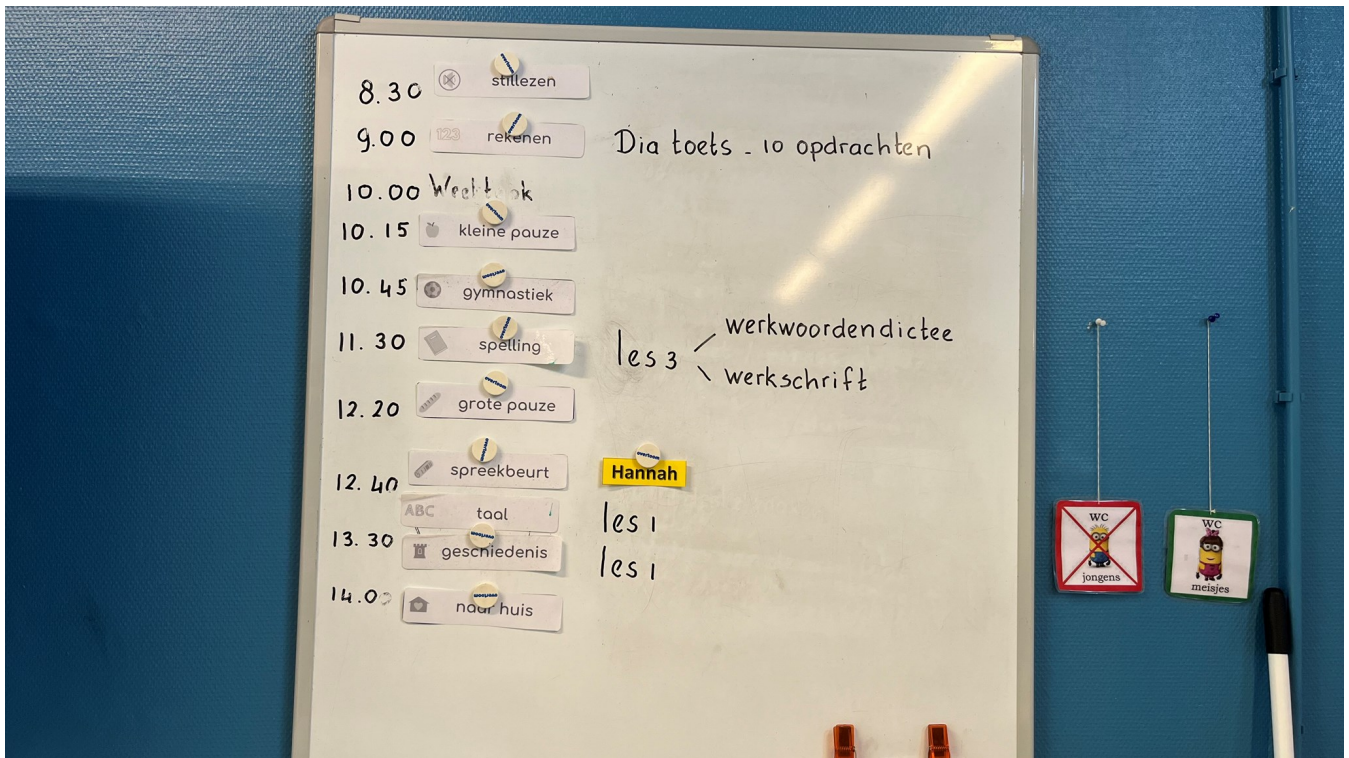 8.30 stillezen
9.00 123 rekenen Dia toets - 10 opdrachten
10.00
10.15 kleine pauze
10.45 gymnastiek
11.30 spelling les 3 werkwoordendictee
werkschrift
12.20 grote pauze
12.40 spreekbeurt Hannah
ABC taal les 1
13.30 geschiedenis les 1
14.00 naar huis
wc jongens
wc meisjes